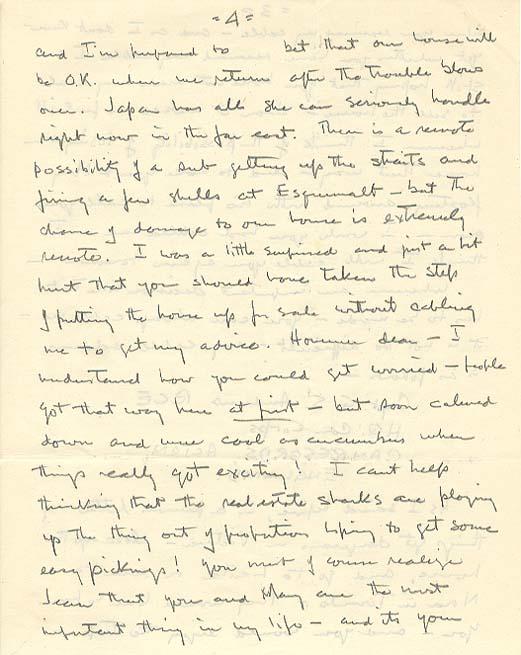 = 4 =
and I'm prepared to bet that our house will
be O.K. when we return after the trouble blows
over. Japan has all she can seriously handle
right now in the far east. There is a remote
possibility of a sub getting up the straits and
firing a few shells at Esquimalt – but the
chance of damage to our house is extremely
remote. I was a little surprised and just a bit
hurt that you should have taken the step
of putting the house up for sale without cabling
me to get my advice. However dear – I
understand how you could get worried – people
got that way here at first – but soon calmed
down and were cool as cucumbers when
things really got exciting! I can't help
thinking that the real estate sharks are playing
up the thing out of proportion hoping to get some
easy pickings! You must of course realize
Jean that you and May are the most
important thing in my life – and its your